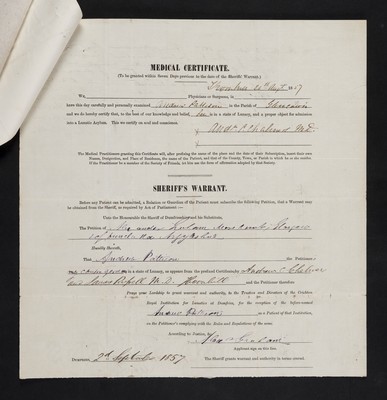 MEDICAL CERTIFICATE.
(To be granted within Seven Days previous to the date of the Sheriff's Warrant.)
Thornhill 28th Augt 1857
We Physicians or Surgeons, in
have this day carefully and personally examined in the Parish of Glencairn
and we do hereby certify that, to the best of our knowledge and belief, he is in a state of Lunacy, and a proper object for admission
into a Lunatic Asylum. This we certify on soul and conscience.
M.D.
The Medical Practitioner granting this Certificate will, after prefixing the name of the place and the date of their Subscription, insert their own
Names, Designation, and Place of Residence, the name of the Patient, and that of the County, Town, or Parish to which he or she resides.
If the Practitioner be a member of the Society of Friends, let him use the form of affirmation adopted by that Society.
SHERIFF'S WARRANT.
Before any Patient can be admitted, a Relation or Guardian of the Patient must subscribe the following Petition, that a Warrant may
be obtained from the Sheriff, as required by Act of Parliament:—
Unto the Honourable the Sheriff of Dumfries and his Substitutes,
The Petition of
Humbly Sheweth,
That Andrew the Petitioner's
is in a state of Lunacy, as appears from the prefixed Certificate by Andrew
and James M.D. Thornhill and the Petitioner therefore
Prays your Lordship to grant warrant and authority, to the Trustees and Directors of the Crichton
Royal Institution for Lunatics at Dumfries, for the reception of the before-named
Andrew as a Patient of that Institution,
on the Petitioner's complying with the Rules and Regulations of the same.
According to Justice,
Graham
Applicant sign on this line.
Dumfries, 2d September 1857 The Sheriff grants warrant and authority in terms craved.